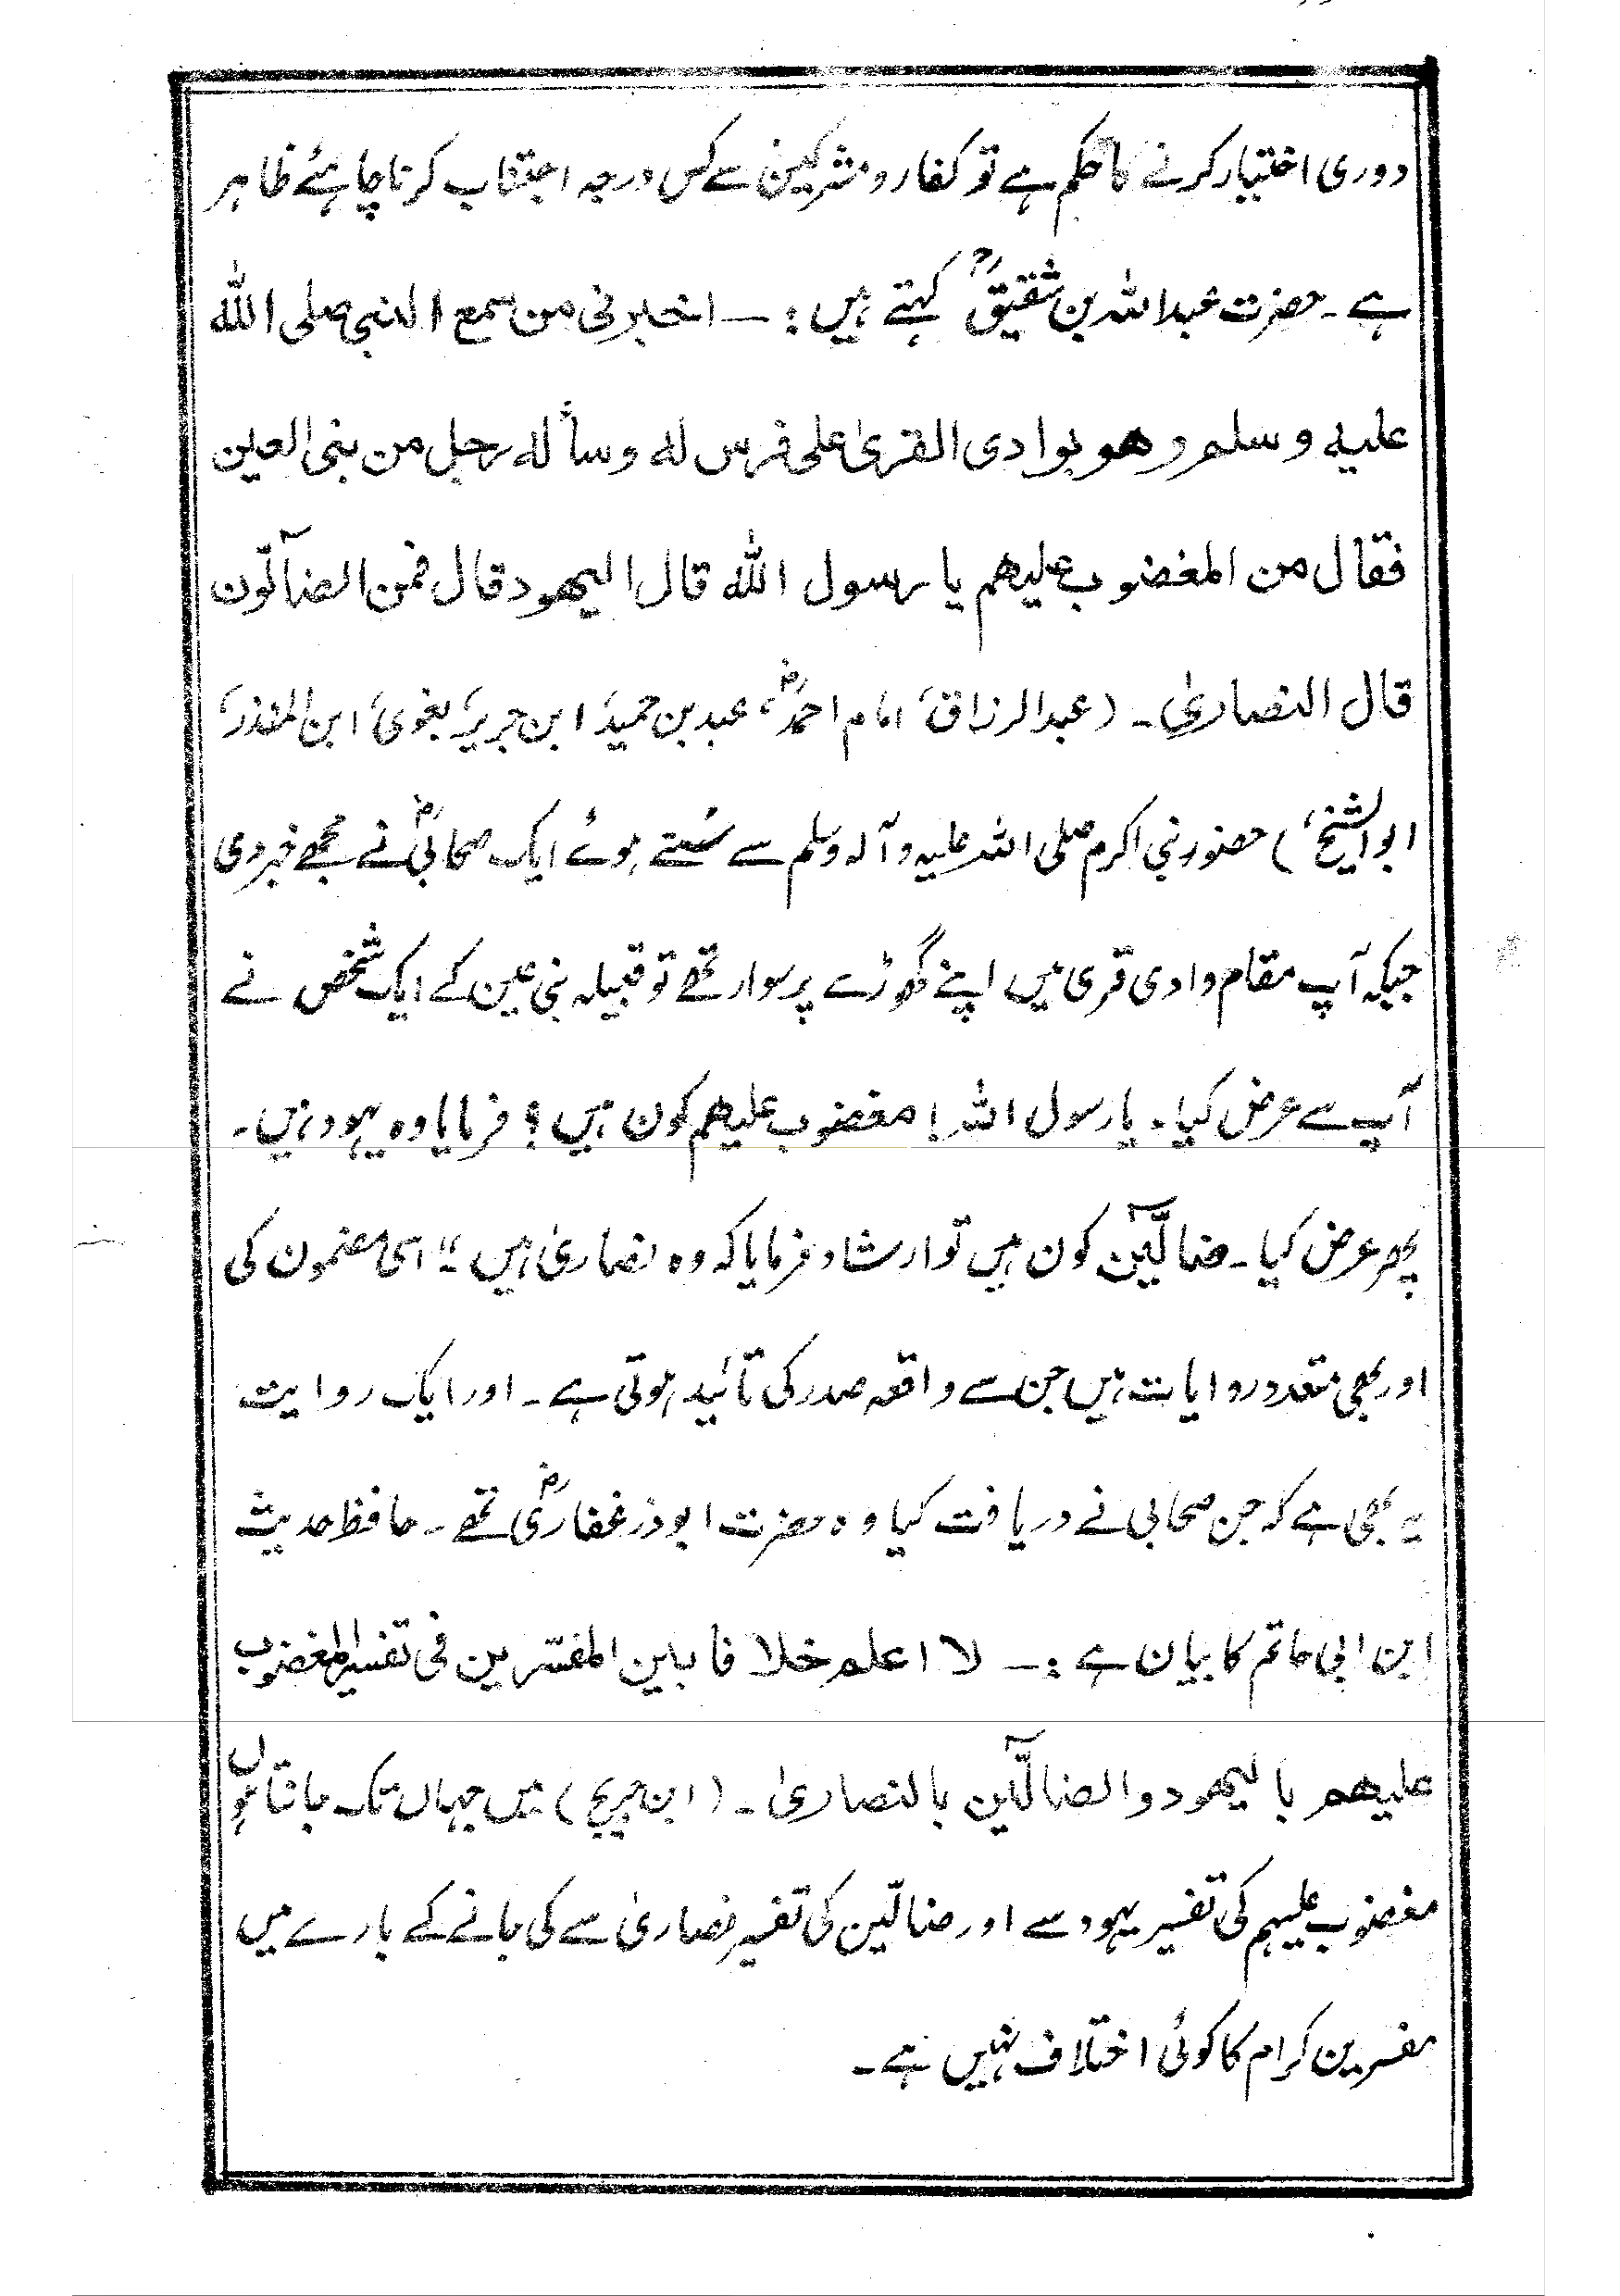 دوری اختیار کرنے کا حکم ہے تو کفار و مشرکین سے کس درجہ اجتناب کرنا چاہئے ظاہر
ہے ۔ حضرت عبداللہ بن شقیقؒ کہتے ہیں :۔ اخبرنی من سمع النبی صلی اللہ
علیہ وسلم وھو بوادی القریٰ علی فرس لہ وسألہ رجل من بنی العین
فقال من المغضوب علیھم یا رسول اللہ قال الیھود قال فمن الضآلّون
قال النصاریٰ ۔ (عبدالرزاق، امام احمدؒ، عبد بن حمید، ابن جریر، بغوی، ابن المنذر،
ابوالشیخ،) حضور نبی اکرم صلی اللہ علیہ وآلہ وسلم سے سُنتے ہوئے ایک صحابیؓ نے مجھے خبر دی
جبکہ آپ مقام وادی قری میں اپنے گھوڑے پر سوار تھے تو قبیلہ بنی عین کے ایک شخص نے
آپ سے عرض کیا ۔ یا رسول اللہ! مغضوب علیھم کون ہیں ؟ فرمایا وہ یہود ہیں ۔
پھر عرض کیا ۔ ضالّین کون ہیں تو ارشاد فرمایا کہ وہ نصاریٰ ہیں ۔" اسی مضمون کی
اور بھی متعدد روایات ہیں جن سے واقعہ صدر کی تائید ہوتی ہے ۔ اور ایک روایت
یہ بھی ہے کہ جن صحابی نے دریافت کیا وہ حضرت ابوذر غفاریؓ تھے ۔ حافظ حدیث
ابن ابی حاتم کا بیان ہے :۔ لا اعلم خلافا بین المفسّرین فی تفسیر المغضوب
علیھم بالیھود والضآلّین بالنصاریٰ ۔ (ابن جریج) میں جہاں تک جانتا ہوں
مغضوب علیہم کی تفسیر یہود سے اور ضالّین کی تفسیر نصاریٰ سے کی جانے کے بارے میں
مفسرین کرام کا کوئی اختلاف نہیں ہے ۔